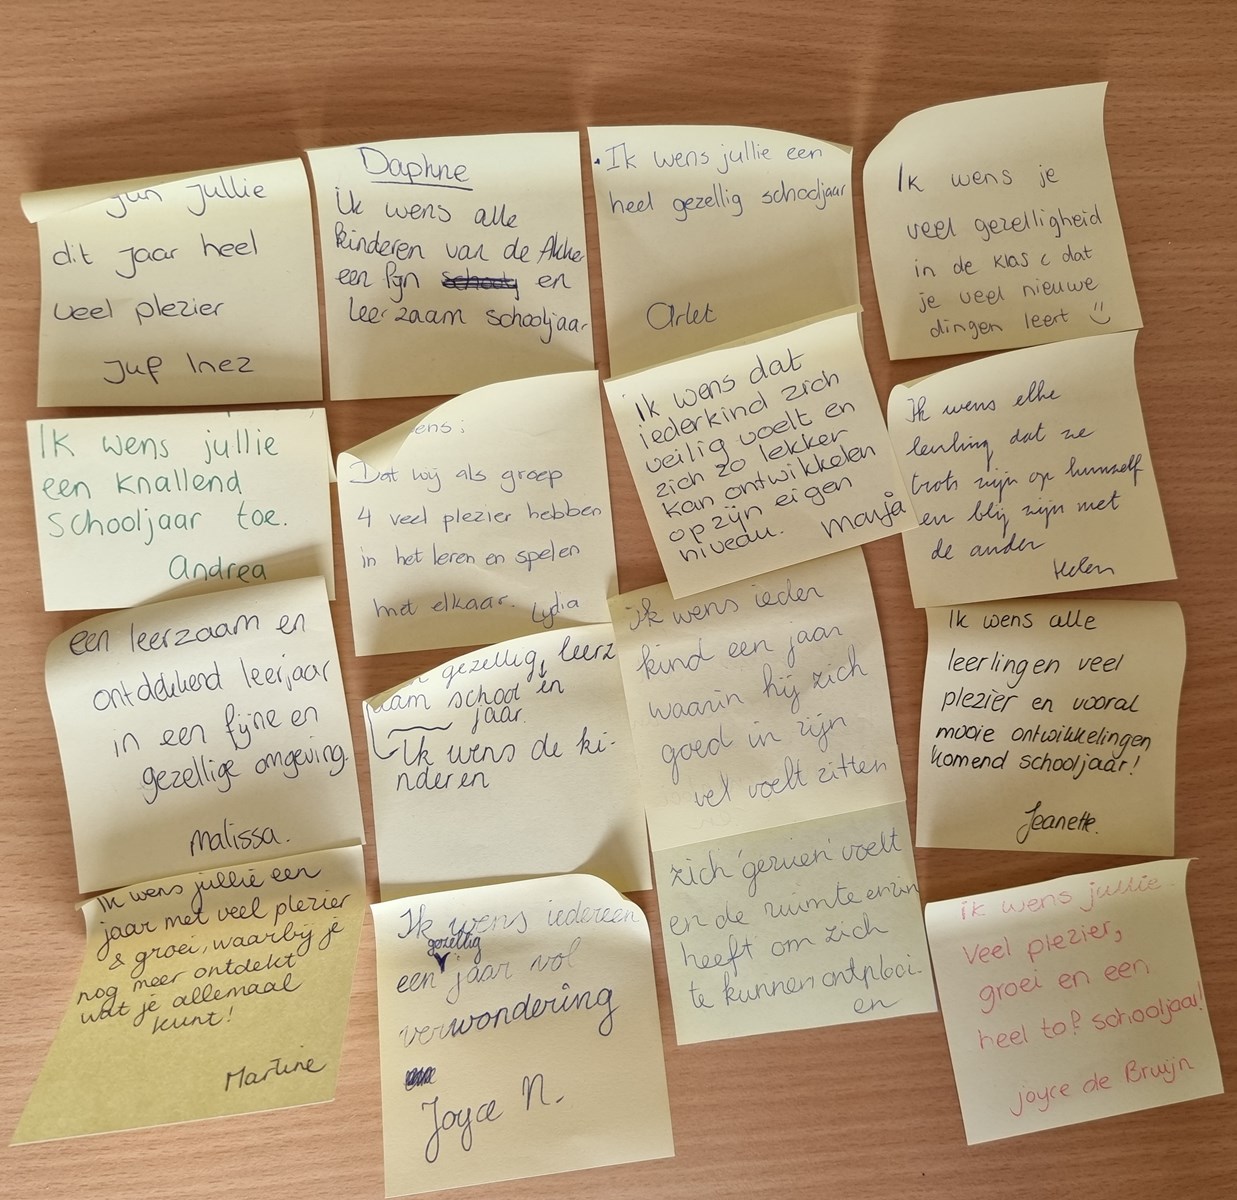 gun jullie
dit jaar heel
veel plezier
Juf Inez
Daphne
Ik wens alle
kinderen van de Akke
een fijn en
leerzaam schooljaar
Ik wens jullie een
heel gezellig schooljaar
Arlet
Ik wens je
veel gezelligheid
in de klas & dat
je veel nieuwe
dingen leert
Ik wens jullie
een knallend
schooljaar toe.
Andrea
ens:
Dat wij als groep
4 veel plezier hebben
in het leren en spelen
met elkaar. Lydia
Ik wens dat
iederkind zich
veilig voelt en
zich zo lekker
kan ontwikkelen
op zijn eigen
niveau. Manja
Ik wens elke
leerling dat ze
trots zijn op hunzelf
en blij zijn met
de ander
Helen
een leerzaam en
ontdekkend leerjaar
in een fijne en
gezellige omgeving.
Malissa.
gezellig, leerz
aam school en
jaar.
Ik wens de ki-
nderen
Ik wens ieder
kind een jaar
waarin hij zich
goed in zijn
vel voelt zitten
zich 'gezien' voelt
en de ruimte erin
heeft om zich
te kunnen ontplooi-
en
Ik wens alle
leerlingen veel
plezier en vooral
mooie ontwikkelingen
komend schooljaar!
Jeanette.
Ik wens jullie een
jaar met veel plezier
& groei, waarbij je
nog meer ontdekt
wat je allemaal
kunt!
Martine
Ik wens iedereen
gezellig
een jaar vol
verwondering
Joyce N.
ik wens jullie
veel plezier,
groei en een
heel tof schooljaar!
joyce de Bruijn